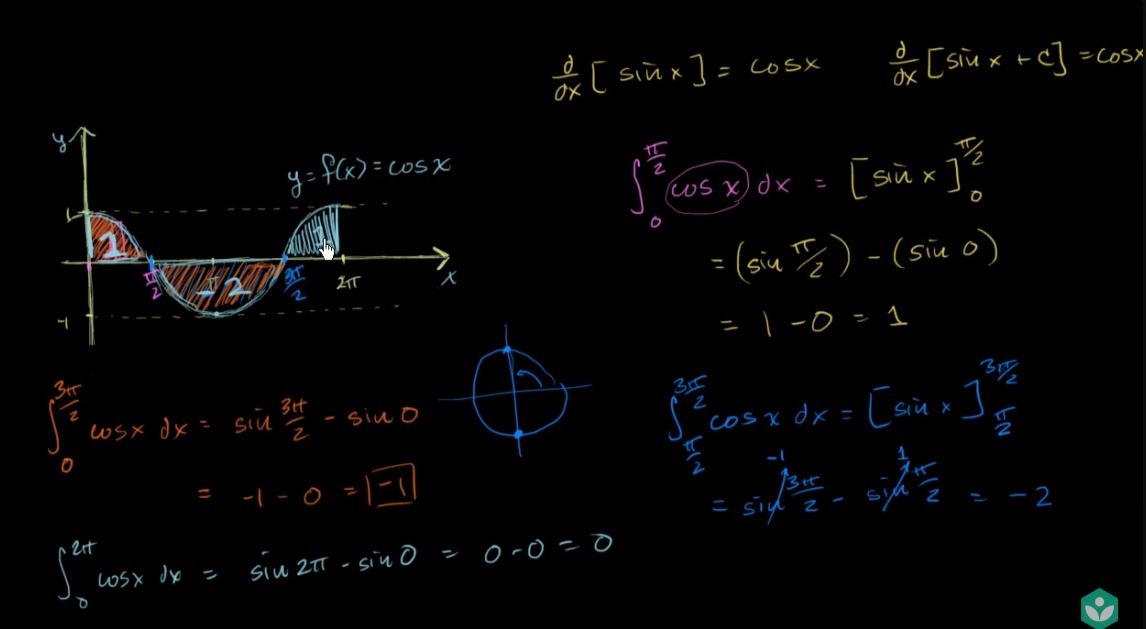 d/dx [sin x] = cos x
d/dx [sin x + C] = cos x
y
y = f(x) = cos x
1
1
-2
1
π/2
π
3π/2
2π
x
-1
∫_0^{π/2} cos x dx = [sin x]_0^{π/2}
= (sin π/2) - (sin 0)
= 1 - 0 = 1
∫_0^{3π/2} cos x dx = sin 3π/2 - sin 0
= -1 - 0 = -1
∫_{π/2}^{3π/2} cos x dx = [sin x]_{π/2}^{3π/2}
-1 1
= sin 3π/2 - sin π/2 = -2
∫_0^{2π} cos x dx = sin 2π - sin 0 = 0 - 0 = 0